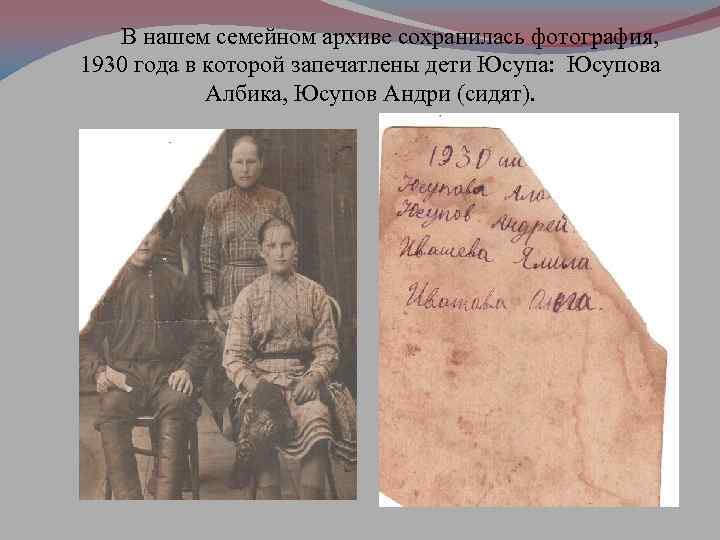 В нашем семейном архиве сохранилась фотография,
1930 года в которой запечатлены дети Юсупа: Юсупова
Албика, Юсупов Андри (сидят).
1930
Юсупова
Юсупов Андрей
Ивашева Ямила
Ивашова